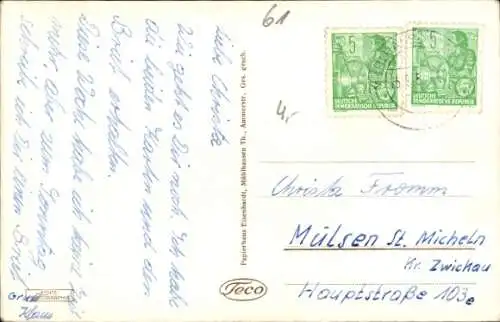 liebe Christa
Wie geht es Dir noch. Ich habe
die beiden Karten und den
Brief erhalten.
Diese Woche habe ich keine Zeit
mehr aber zum Sonntag
schreib ich Dir einen Brief
Gruß
Klaus
ECHTE
Papierhaus Eisenhardt, Mühlhausen Th., Ammerstr. Ges. gesch.
Foco
61
4,-
5
DEUTSCHE
DEMOKRATISCHE REPUBLIK
5
DEUTSCHE
DEMOKRATISCHE REPUBLIK
Christa Fromm
Mülsen St. Micheln
Kr. Zwickau
Hauptstraße 103e